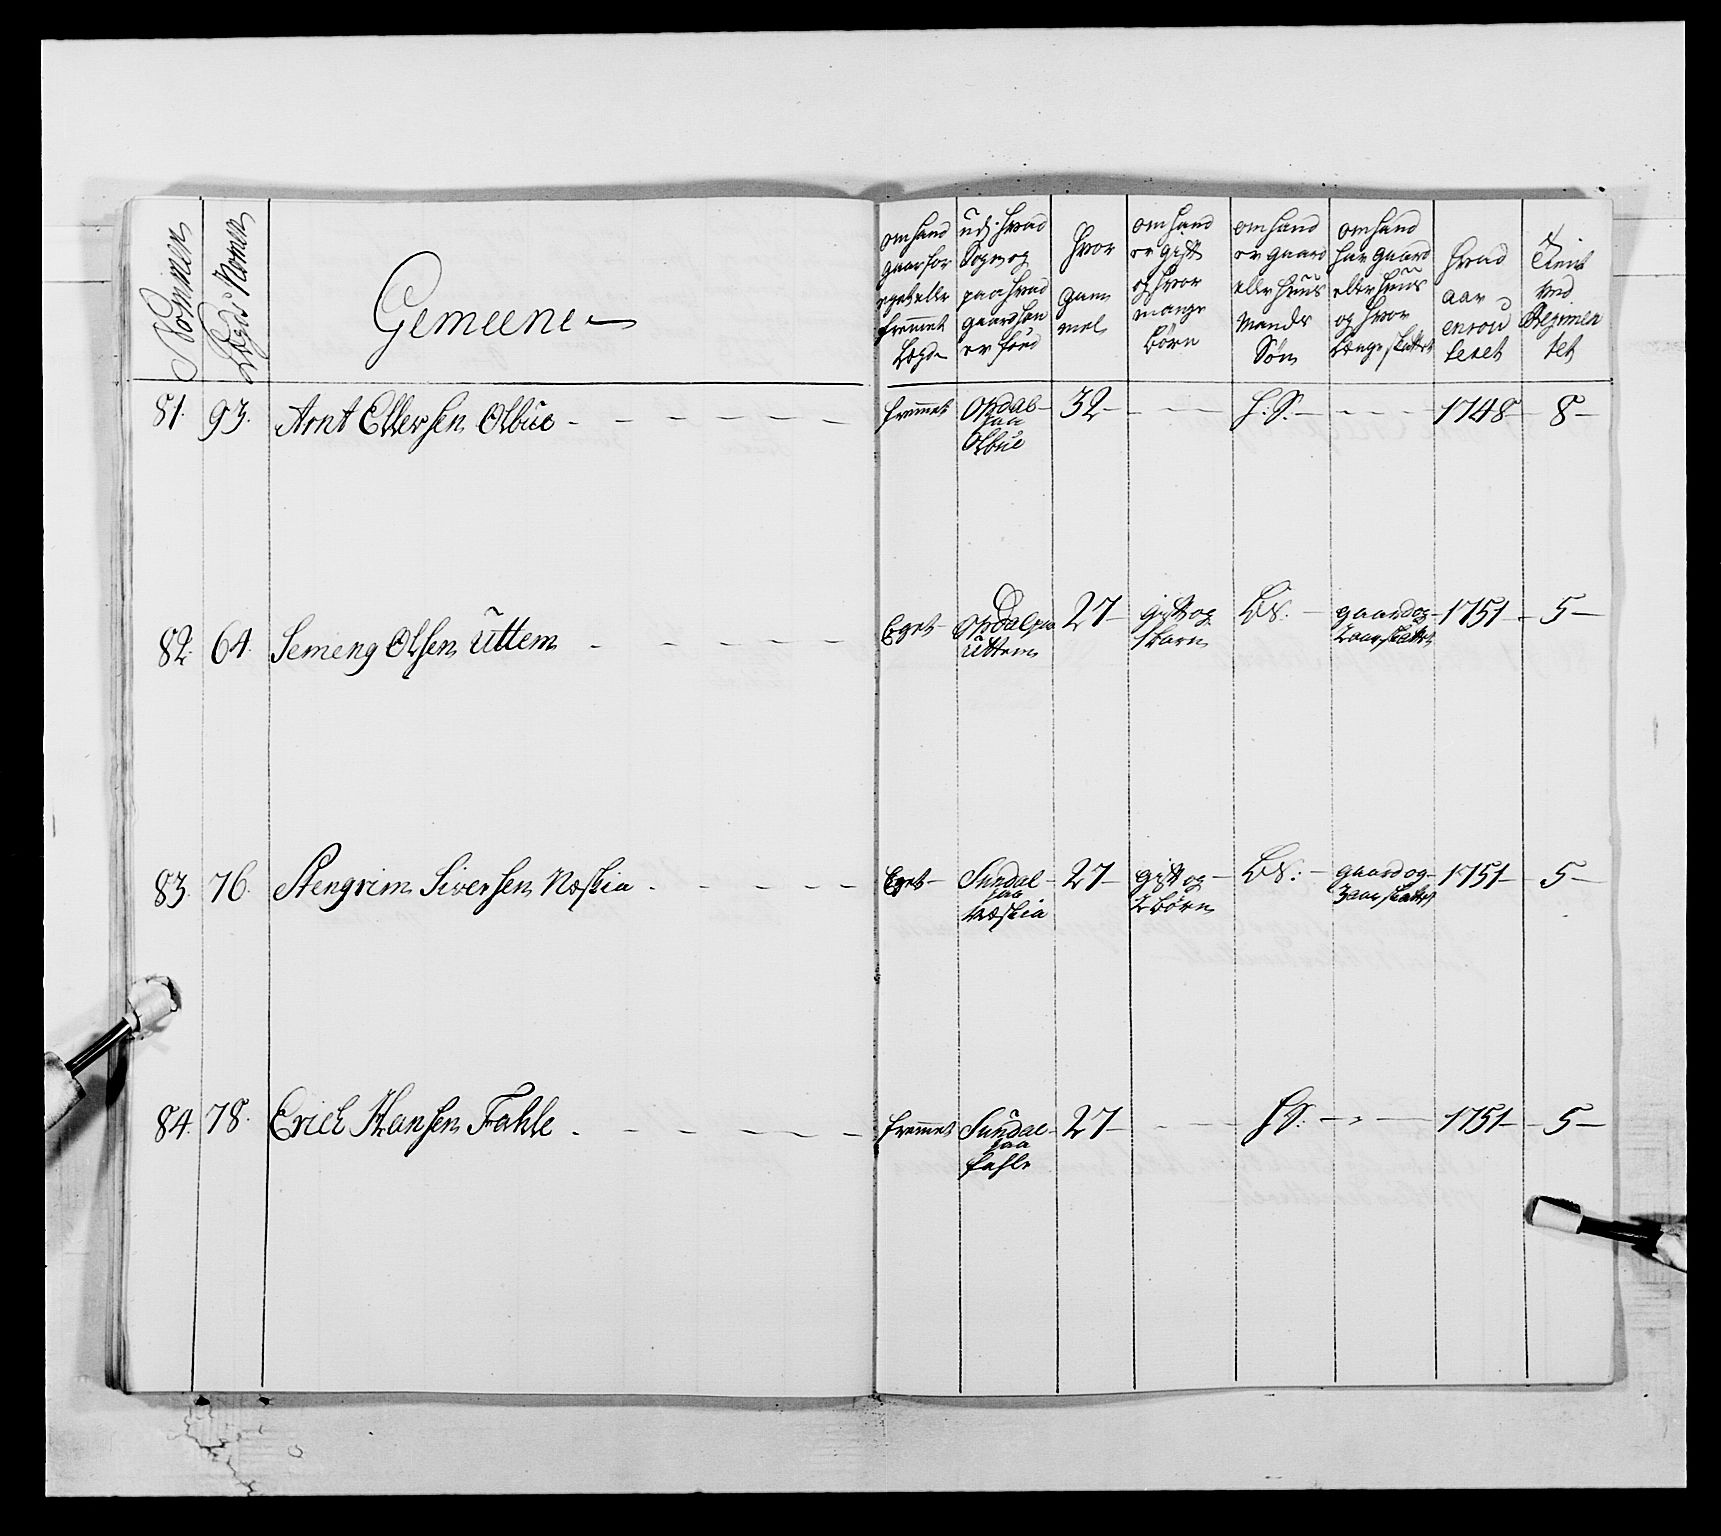 Nommer
Lægds Nomer
Gemeene
om hand gaar for eget eller fremmet Lægd
udj hvad Sogn og paa hvad gaard han er fød
hvor gam mel
om hand er gift og hvor mange børn
om hand er gaard eller huus Mands Søn
om hand har gaard eller huus og hvor længe skattet
hvad aar enrou leret
Tient ved Regimen tet
81. 93. Arnt Ellersen Olbue - fremmet Opdal paa Olbue 32 - H: S: - 1748 - 8 -
82. 64. Semeng Olsen Uttem - Eget - Opdal paa Uttem 27 - gift og 1 barn B S: - gaard og 2 aar skattet - 1751 - 5 -
83. 76. Stengrim Siversen Næskia - Eget - Sundal paa Næskia 27 - gift og 2 børn - B S: - gaard og 3 aar skattet 1751 - 5 -
84. 78. Erich Hansen Fahle - fremmet Sundal paa Fahle 27 - H S: - 1751 - 5 -